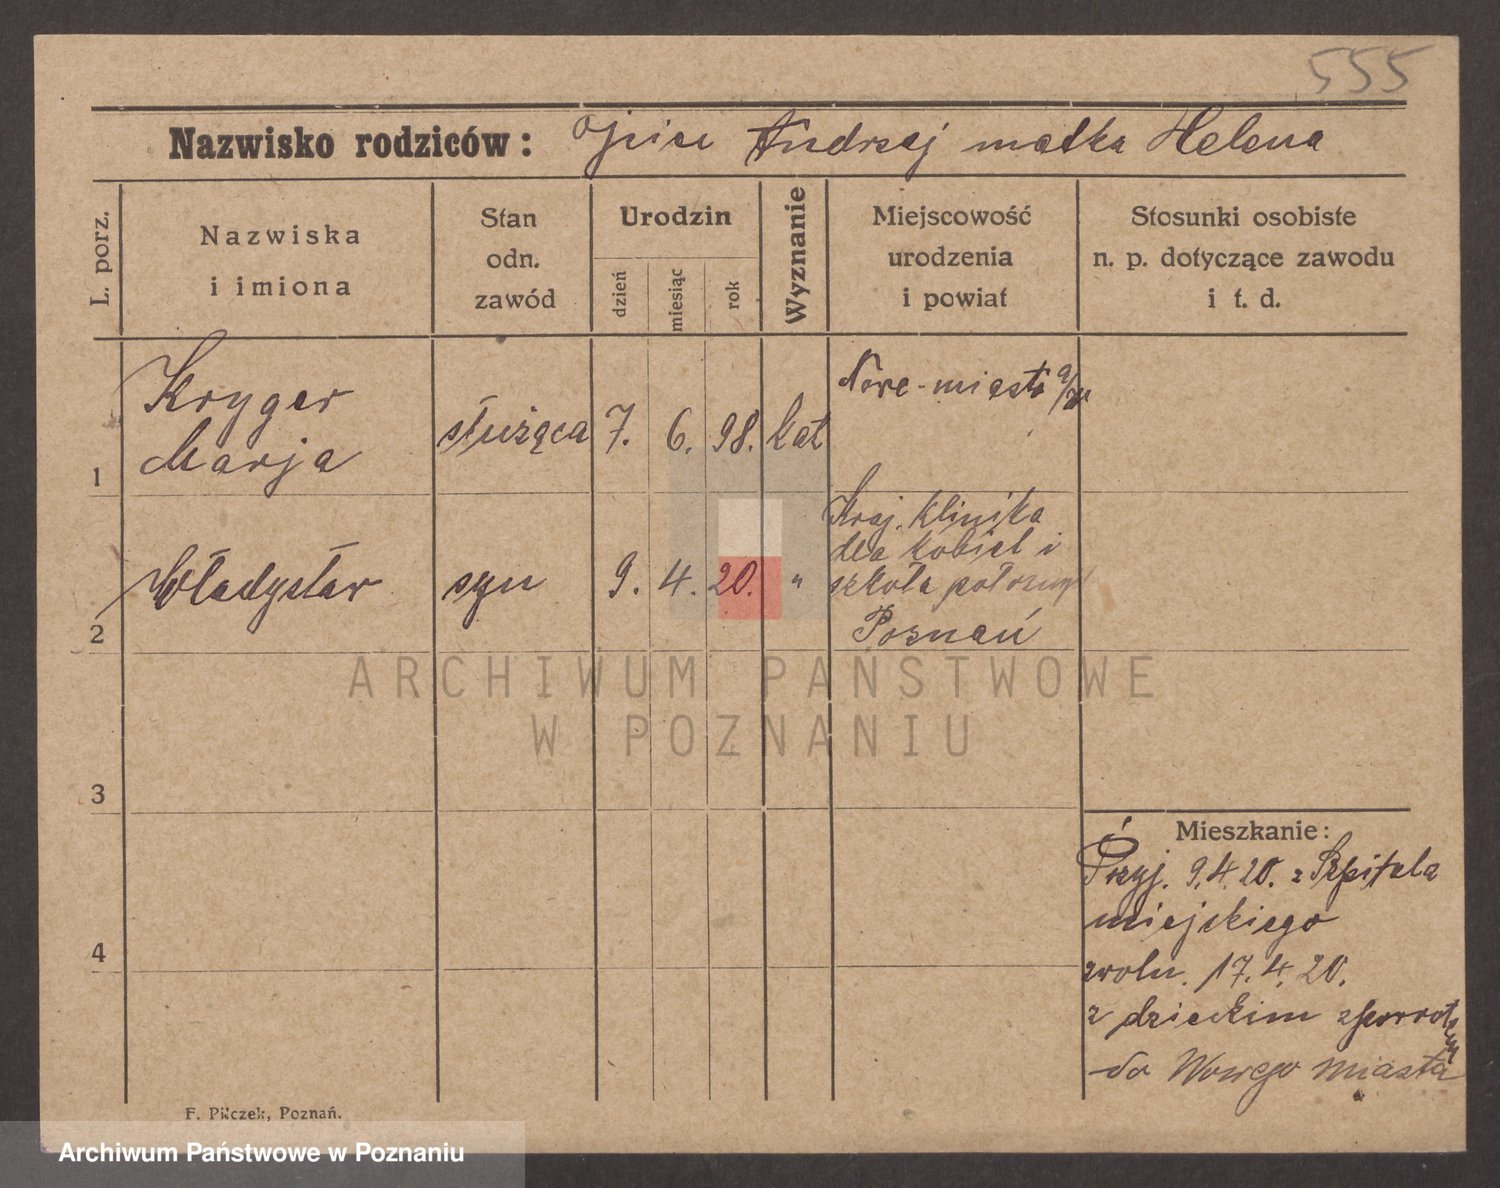 555
Nazwisko rodziców: Ojciec Andrzej matka Helena
L. porz.
Nazwiska
i imiona
Stan
odn.
zawód
Urodzin
dzień
miesiąc
rok
Wyznanie
Miejscowość
urodzenia
i powiat
Stosunki osobiste
n. p. dotyczące zawodu
i t. d.
1
Kryger
Marja
służąca
7. 6. 98. kat
Nowe-miasto
2
Władysław
syn
9. 4. 20. "
Kraj. klinika
dla kobiet i
szkoła położnych
Poznań
3
4
Mieszkanie:
Przyj. 9.4.20. z Szpitala
miejskiego
zwoln. 17.4.20.
z dzieckim
do Nowego miasta
F. Pilczek, Poznań.
ARCHIWUM PAŃSTWOWE
W POZNANIU
Archiwum Państwowe w Poznaniu